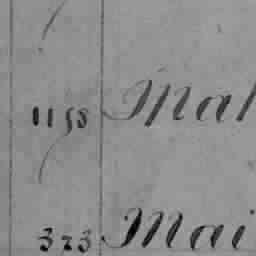 1158 Mal
323 Mai